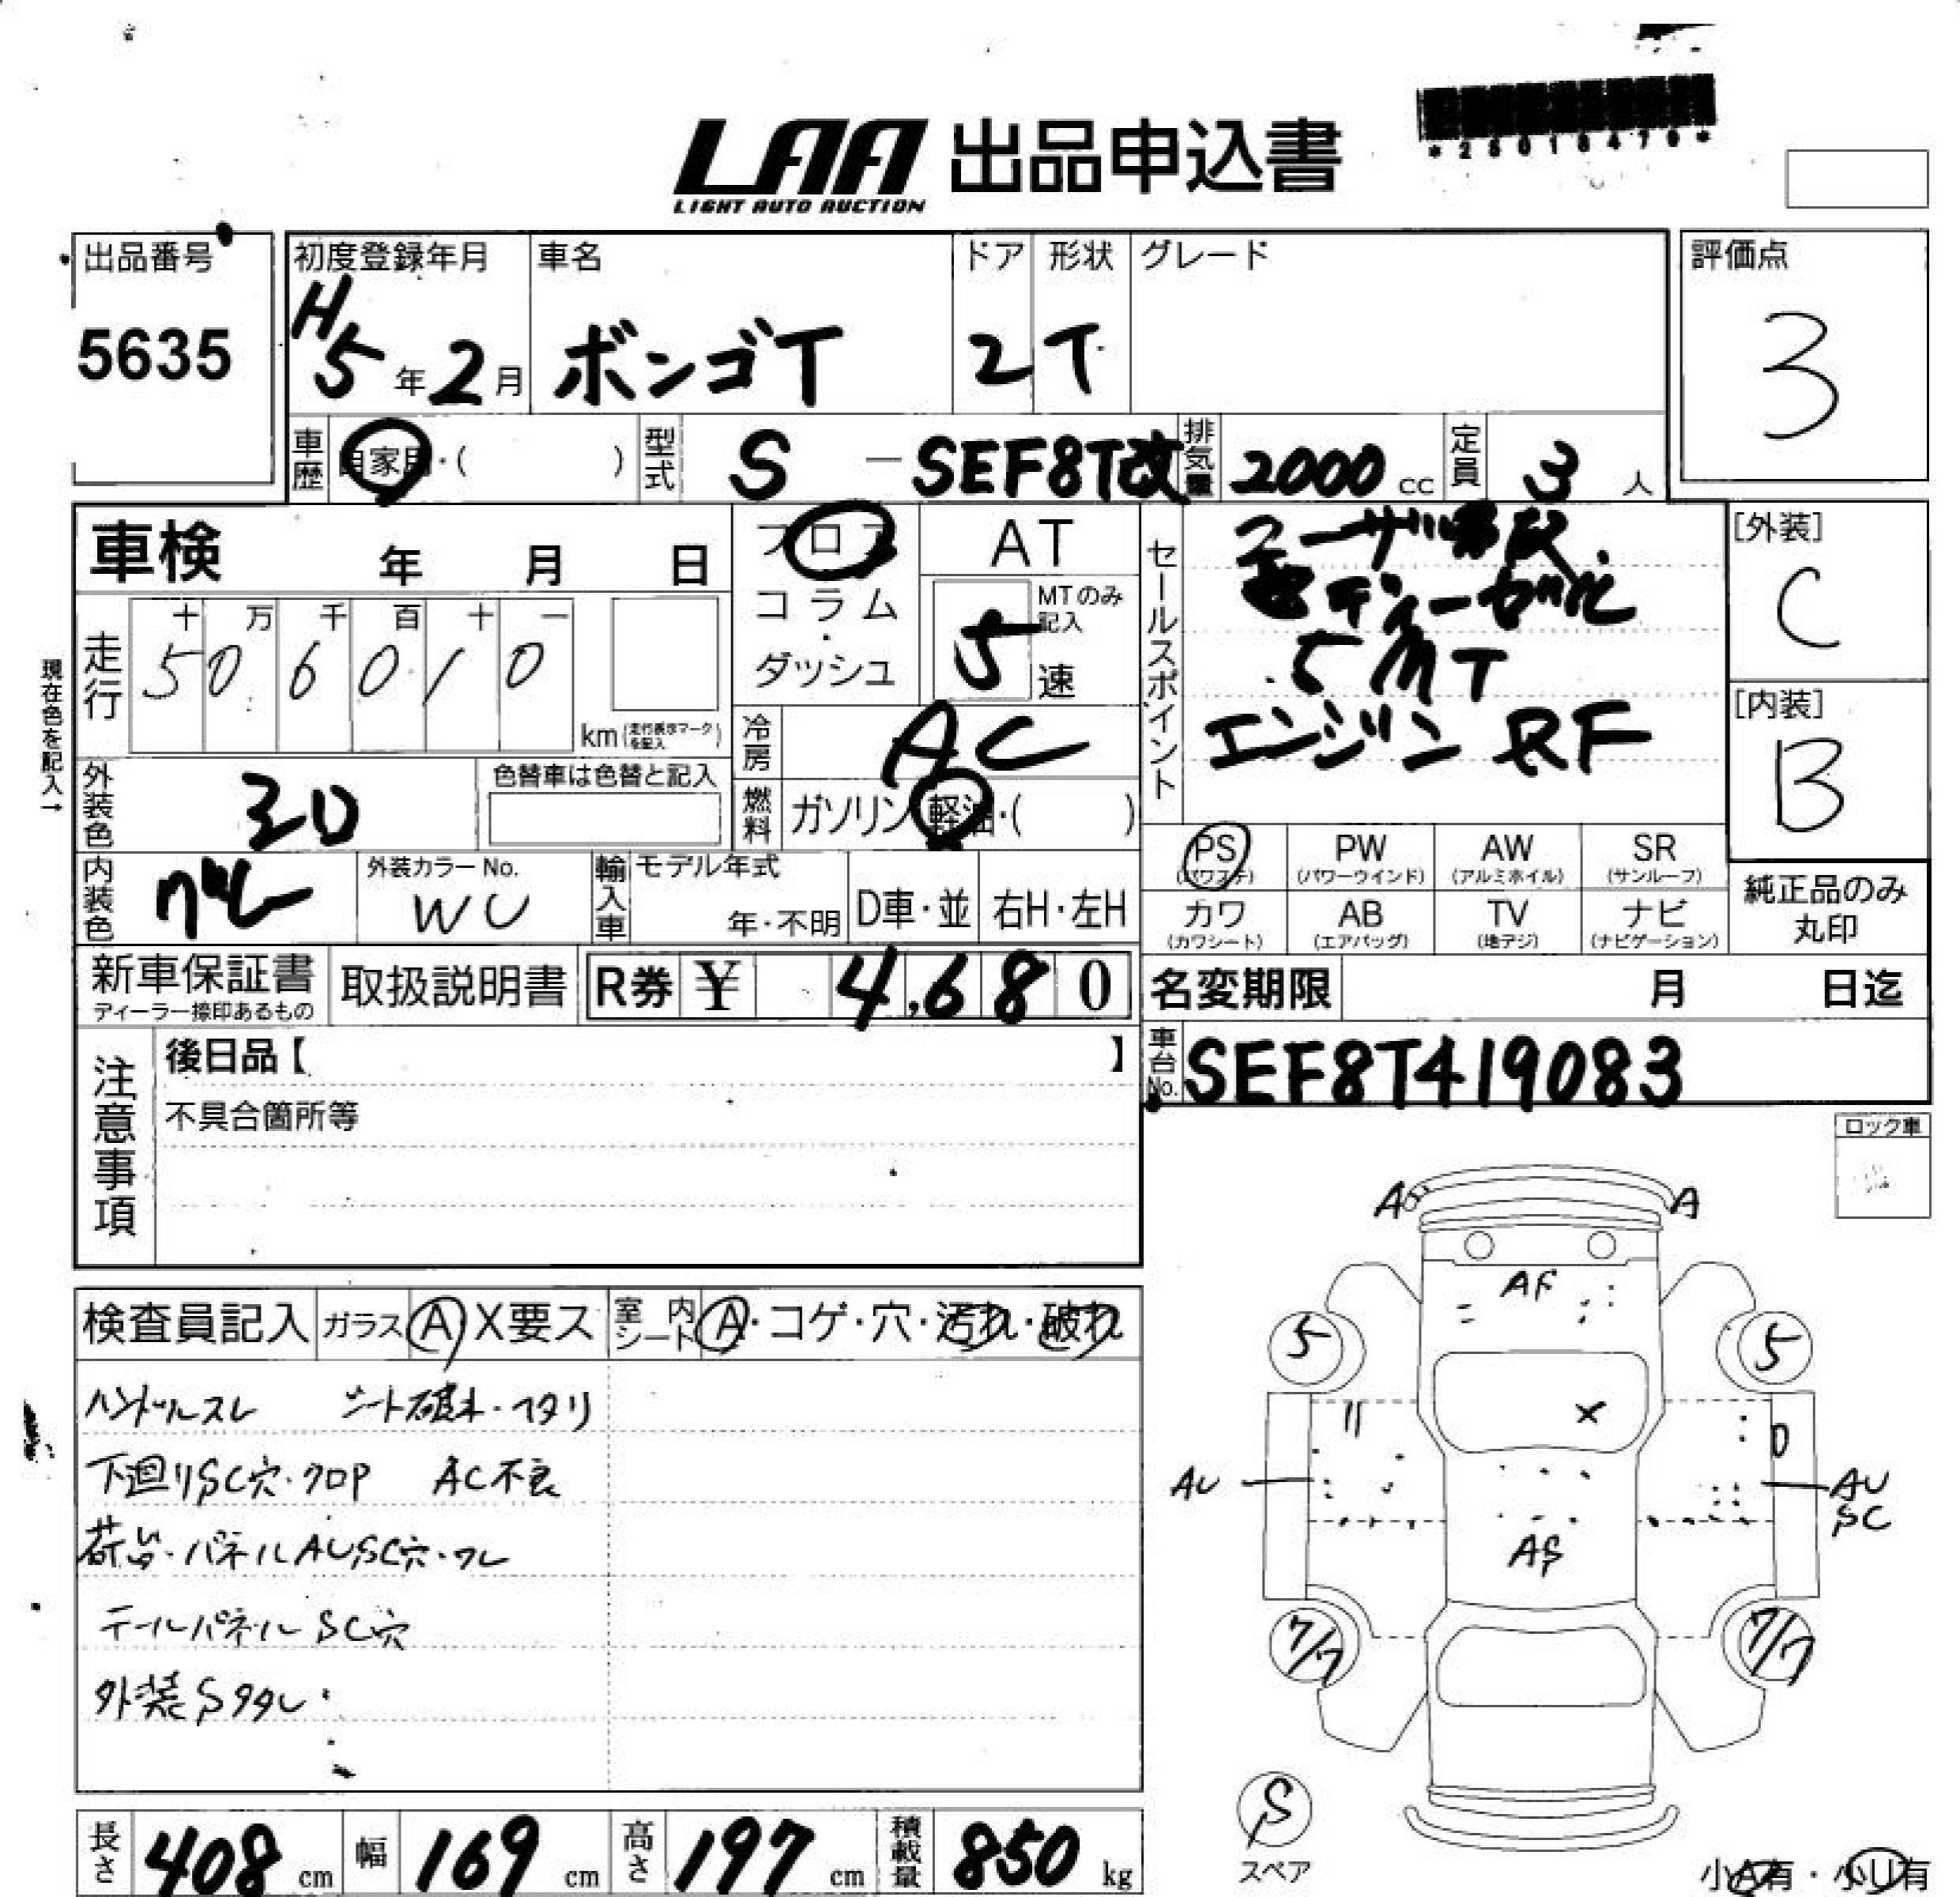 LAA 出品申込書
LIGHT AUTO AUCTION
出品番号
5635
初度登録年月
H5年2月
車名
ボンゴT
ドア
2
形状
T
グレード
評価点
3
車歴
自家用・( )
型式
S - SEF8T改
排気量
2000cc
定員
3人
車検 年 月 日
フロア
コラム
ダッシュ
AT
MTのみ記入
5速
セールスポイント
ディーゼル
5MT
エンジン RF
[外装]
C
[内装]
B
現在色を記入→
走行
十 万 千 百 十 一
50 6 0 1 0
km(走行表示マークを記入)
冷房
AC
外装色
シロ
色替車は色替と記入
燃料
ガソリン・軽油・( )
PS
(パワステ)
PW
(パワーウインド)
AW
(アルミホイル)
SR
(サンルーフ)
カワ
(カワシート)
AB
(エアバッグ)
TV
(地デジ)
ナビ
(ナビゲーション)
純正品のみ
丸印
内装色
グレー
外装カラーNo.
WU
輸入車
モデル年式
年・不明
D車・並
右H・左H
新車保証書
ディーラー捺印あるもの
取扱説明書
R券 ¥ 4,680
名変期限 月 日迄
車台No.
SEF8T419083
注意事項
後日品【 】
不具合箇所等
ロック車
検査員記入
ガラス A X要ス
室内シート A・コゲ・穴・汚れ・破れ
ハンドルスレ シート破れ・ヘタリ
下廻りSC穴・クロP AC不良
荷台・パネルAUSC穴・ワレ
テールパネルSC穴
外装Sタタレ
A
A
AF
5
5
X
U
AU
AU
SC
AS
7/7
7/7
S
スペア
長さ 408cm
幅 169cm
高さ 197cm
積載量 850kg
小A有・小U有